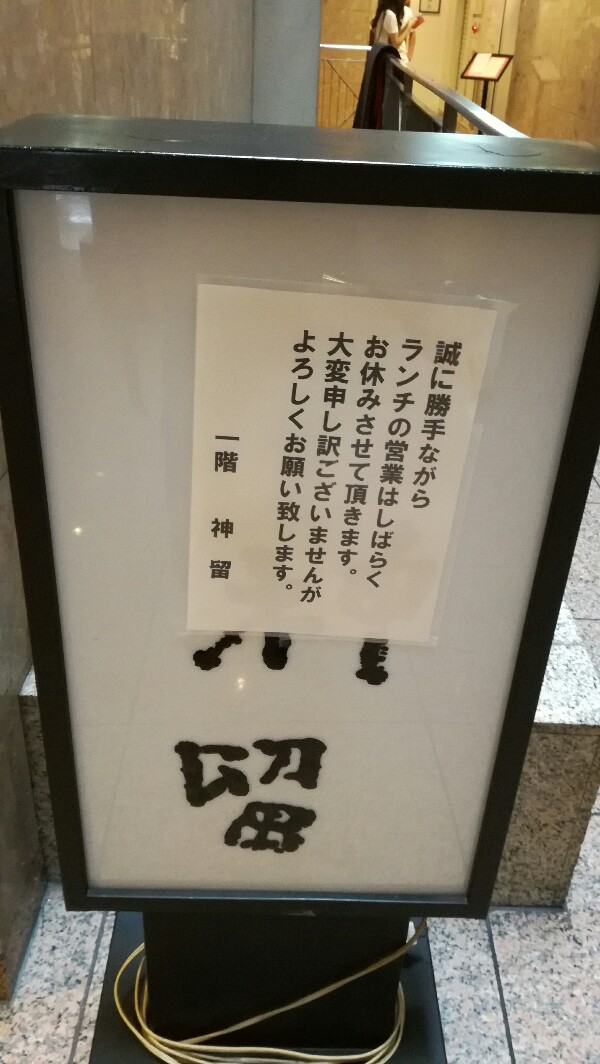 誠に勝手ながら
ランチの営業はしばらく
お休みさせて頂きます。
大変申し訳ございませんが
よろしくお願い致します。
一階 神留
留